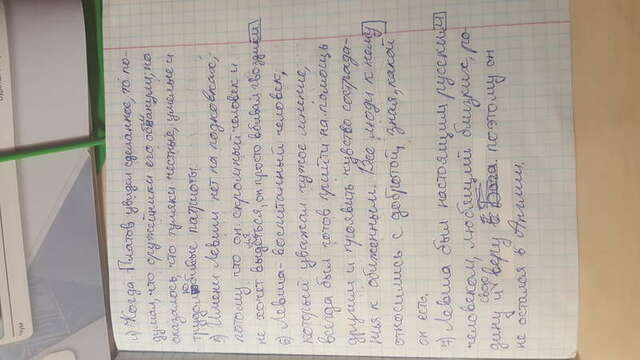 1) Когда Платов увидел сделанное, то по-
думал, что оружейники его обманули, но
оказалось, что туляки честные, умелые и
трудолюбивые патриоты.
5) Имени Левши нет на подковках,
потому что он скромный человек и
не хочет выдаться, он просто вбивал гвоздики
6) Левша - воспитанный человек,
который уважал чужое мнение,
всегда был готов прийти на помощь
другим и проявить чувство сострада-
ния к обиженным. Все люди к нему
относились с добротой, зная, какой
он есть.
7) Левша был настоящим русским
человеком, любящий близких, ро-
дину и свою веру поэтому он
не остался в Англии.